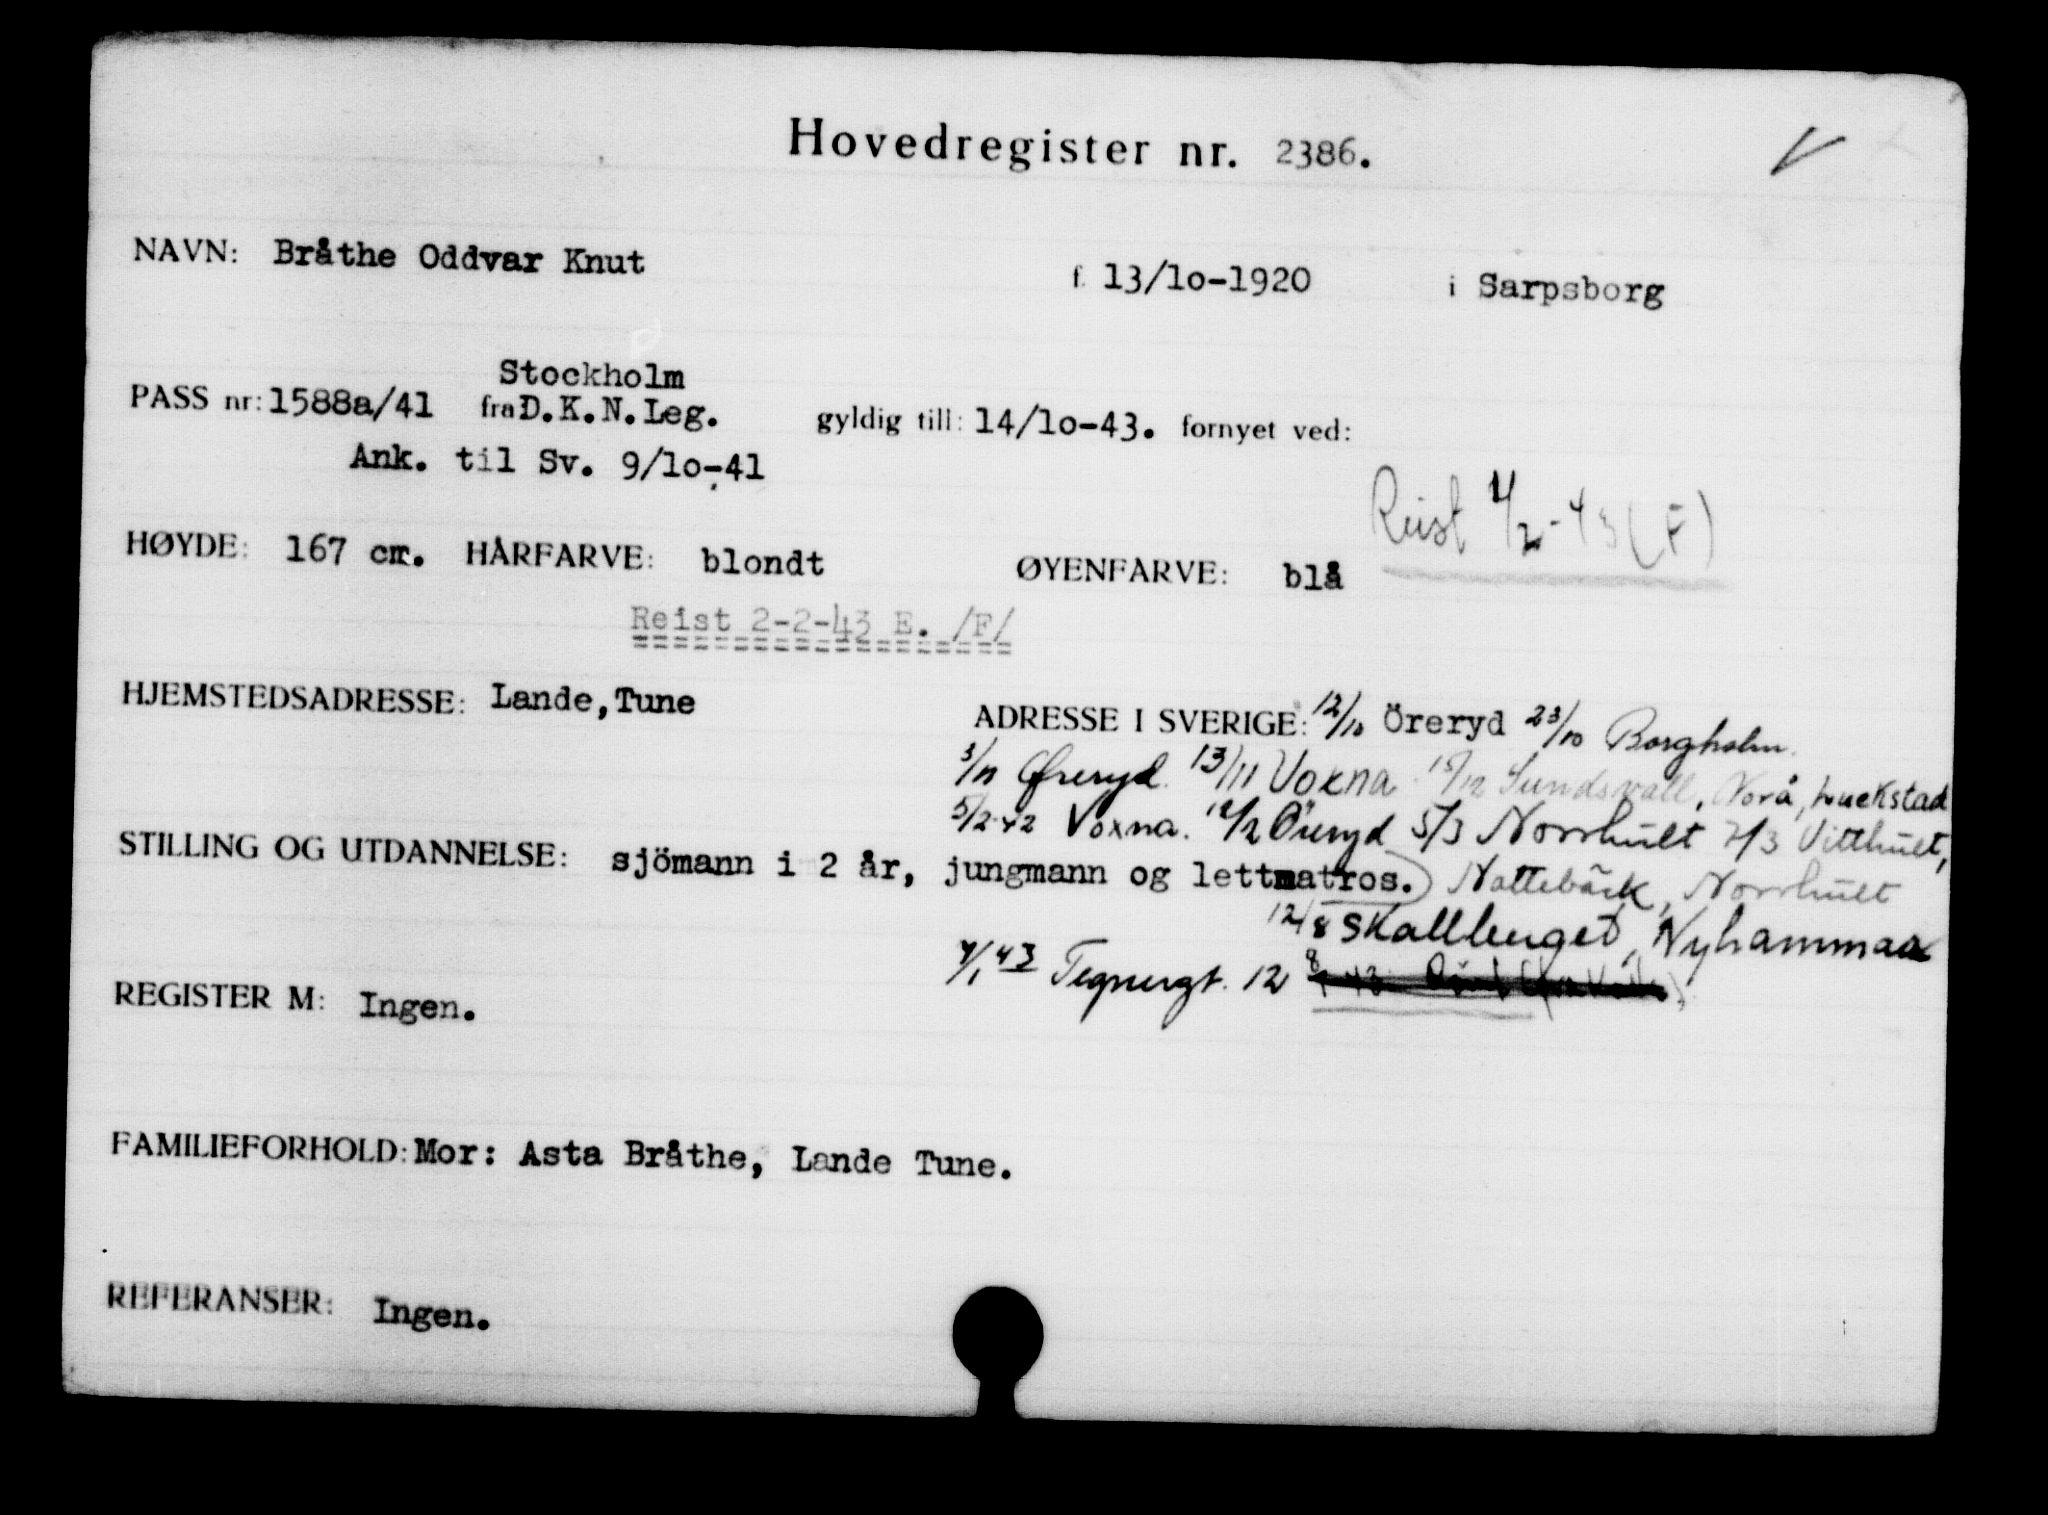 Hovedregister nr. 2386.
NAVN: Bråthe Oddvar Knut f. 13/10-1920 i Sarpsborg
Stockholm
PASS nr: 1588a/41 fra D.K.N.Leg. gyldig till: 14/10-43. fornyet ved:
Ank. til Sv. 9/10-41
Reist 4/2-43 (F)
HØYDE: 167 cm. HÅRFARVE: blondt ØYENFARVE: blå
Reist 2-2-43 E. /F/
HJEMSTEDSADRESSE: Lande, Tune ADRESSE I SVERIGE: 12/10 Öreryd 23/10 Borgholm.
3/11 Øreryd. 13/11 Voxna 15/12 Sundsvall,
5/2-42 Voxna. 12/2 Öreryd 5/3 Norrhult 7/3 Vitthult,
STILLING OG UTDANNELSE: sjömann i 2 år, jungmann og lettmatros. Nottebäck, Norrhult
12/8 Skallberget, Nyhammar
4/1 43 Tegnergt. 12
REGISTER M: Ingen.
FAMILIEFORHOLD: Mor: Asta Bråthe, Lande Tune.
REFERANSER: Ingen.